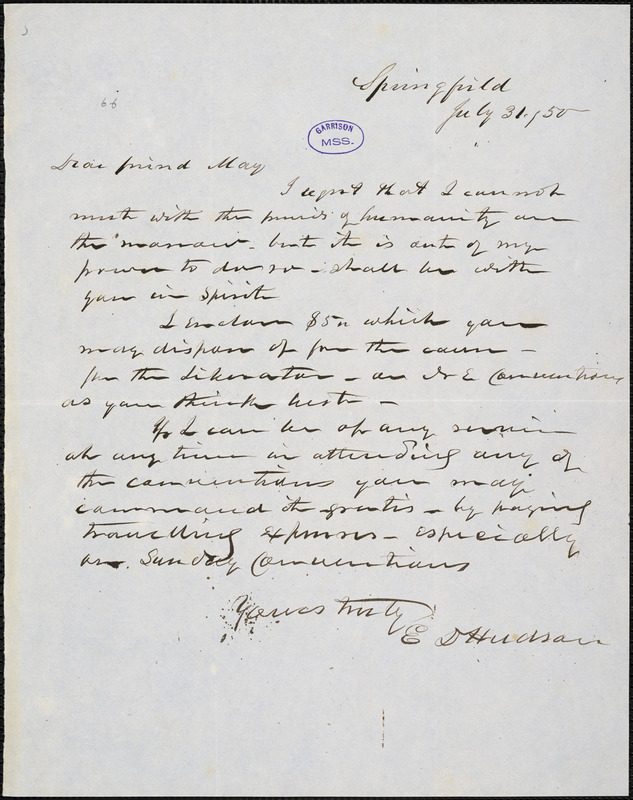 66
Springfield
July 31, /50
GARRISON
MSS.
Dear friend May
I regret that I cannot
meet with the friends of humanity on
the morrow - but it is out of my
power to do so - shall be with
you in Spirit
I enclose $5 which you
may dispose of for the cause -
for the Liberator - or N E Conventions
as you think best -
If I can be of any service
at any time in attending any of
the conventions you may
command it gratis - by paying
travelling expenses - especially
on Sunday Conventions
Yours truly
E D Hudson